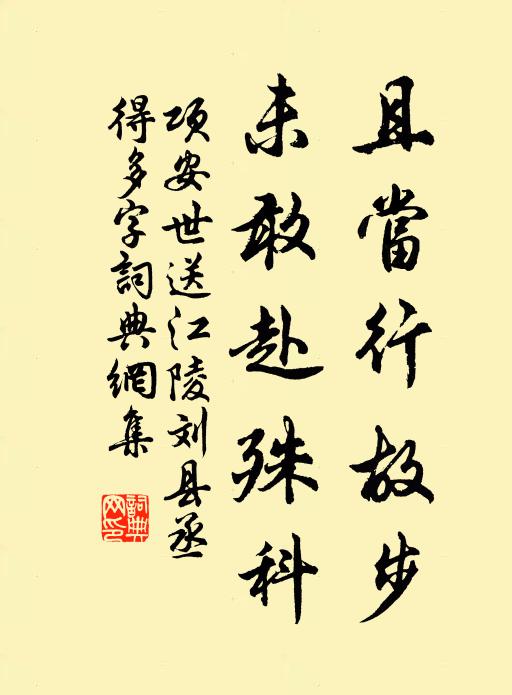 且當行故步
未敢赴殊科
项安世送江陵刘县丞
得多字詞典網集
詞典
网印